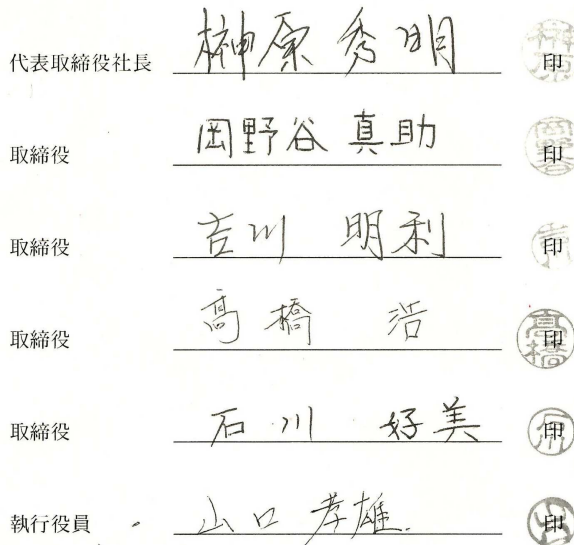 代表取締役社長 榊原秀明 印
取締役 岡野谷真助 印
取締役 吉川 明利 印
取締役 高橋 浩 印
取締役 石川 好美 印
執行役員 山口孝雄 印